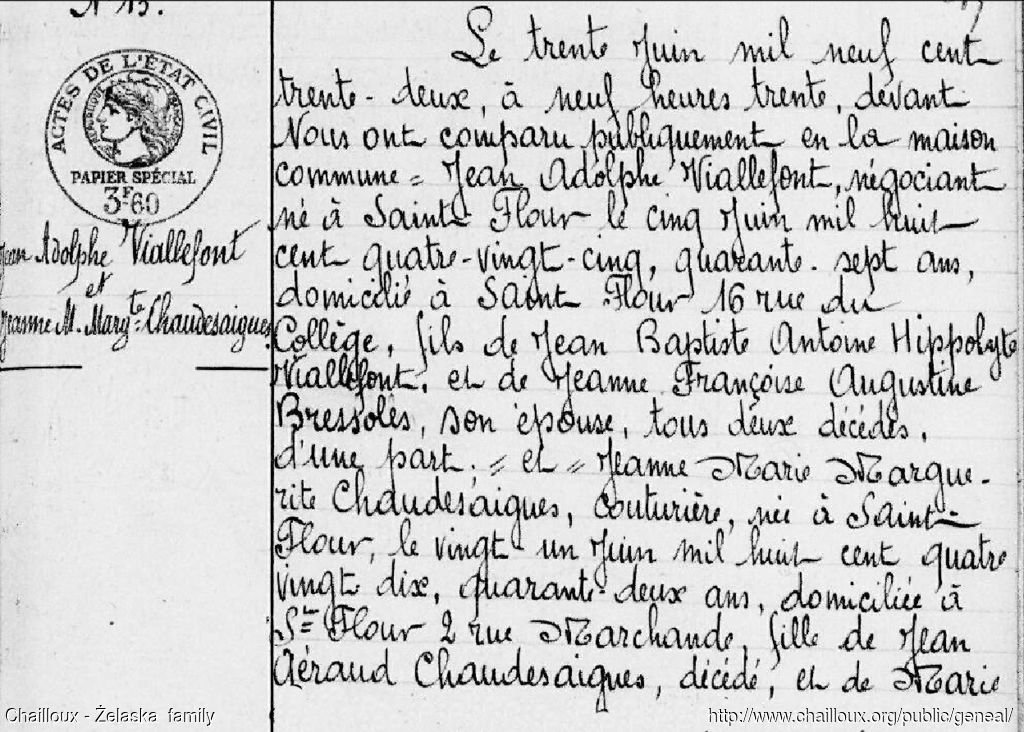 N° 13.
ACTES DE L'ÉTAT CIVIL
PAPIER SPÉCIAL
3F60
Jean Adolphe Viallefont
et
Jeanne M. Margte Chaudesaigues.
Le trente Juin mil neuf cent
trente-deux, à neuf heures trente, devant
Nous ont comparu publiquement en la maison
commune = Jean Adolphe Viallefont, négociant
né à Saint-Flour le cinq Juin mil huit
cent quatre-vingt-cinq, quarante-sept ans,
domicilié à Saint Flour 16 rue du
Collège, fils de Jean Baptiste Antoine Hippolyte
Viallefont, et de Jeanne Françoise Augustine
Bressolès, son épouse, tous deux décédés,
d'une part. = et = Jeanne Marie Margue-
rite Chaudesaigues, couturière, née à Saint-
Flour, le vingt-un Juin mil huit cent quatre
vingt dix, quarante-deux ans, domiciliée à
St Flour 2 rue Marchande, fille de Jean
Géraud Chaudesaigues, décédé, et de Marie
Chailloux - Żelaska family
http://www.chailloux.org/public/geneal/